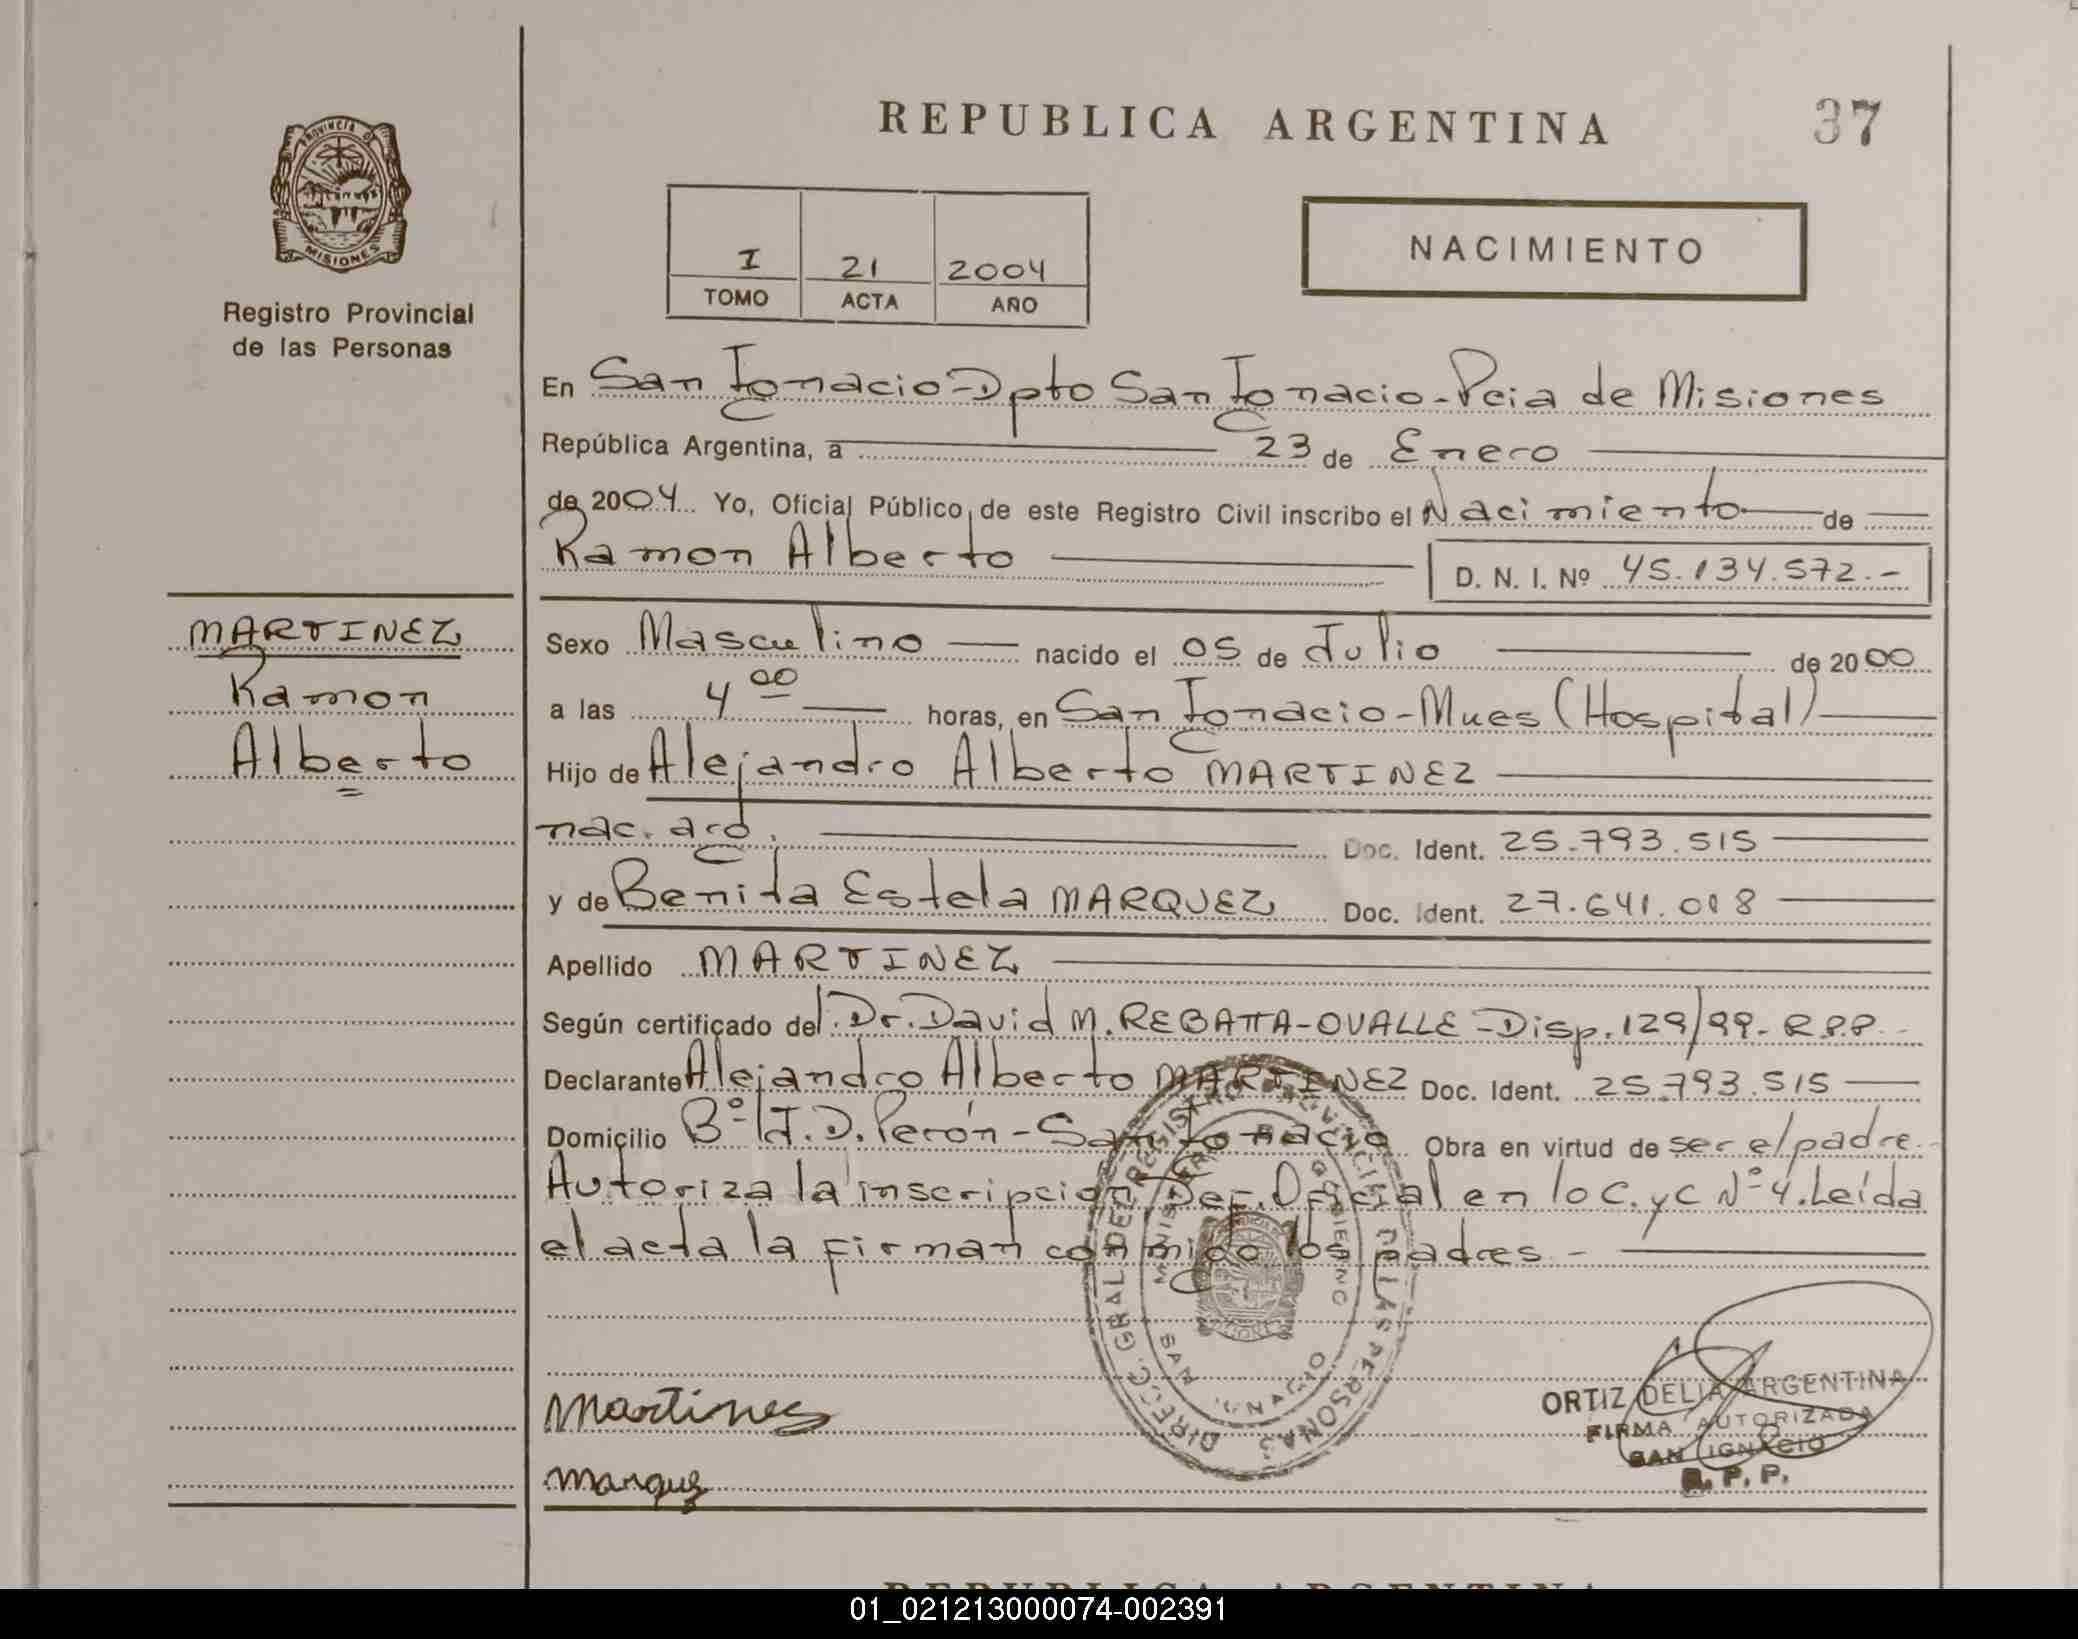 REPUBLICA ARGENTINA
37
PROVINCIA D
MISIONES
Registro Provincial
de las Personas
I 21 2004
TOMO ACTA AÑO
NACIMIENTO
En San Ignacio-Dpto San Ignacio-Pcia de Misiones
República Argentina, a 23 de Enero
de 2004 Yo, Oficial Público de este Registro Civil inscribo el Nacimiento de
Ramon Alberto
D. N. I. Nº 45.134.572.-
MARTINEZ
Ramon
Alberto
Sexo Masculino nacido el 05 de Julio de 2000
a las 4 00 horas, en San Ignacio-Mnes (Hospital)
Hijo de Alejandro Alberto MARTINEZ
nac. arg. Doc. Ident. 25.793.515
y de Benita Estela MARQUEZ Doc. Ident. 27.641.008
Apellido MARTINEZ
Según certificado del Dr. David M. REBATTA-OVALLE-Disp. 129/99- R.P.P.
Declarante Alejandro Alberto MARTINEZ Doc. Ident. 25.793.515
Domicilio Bº J.D. Perón-San Ignacio Obra en virtud de ser el padre.
Autoriza la inscripcion Def. Oficial en lo C. y C Nº 4. Leída
el acta la firman conmigo los padres-
DIRECC. GRAL DE REGISTRO PROVINCIAL DE LAS PERSONAS
MINISTERIO DE GOBIERNO
SAN IGNACIO
Martines
Marquez
ORTIZ DELIA ARGENTINA
FIRMA AUTORIZADA
SAN IGNACIO
R. P. P.
REPUBLICA ARGENTINA
01_021213000074-002391